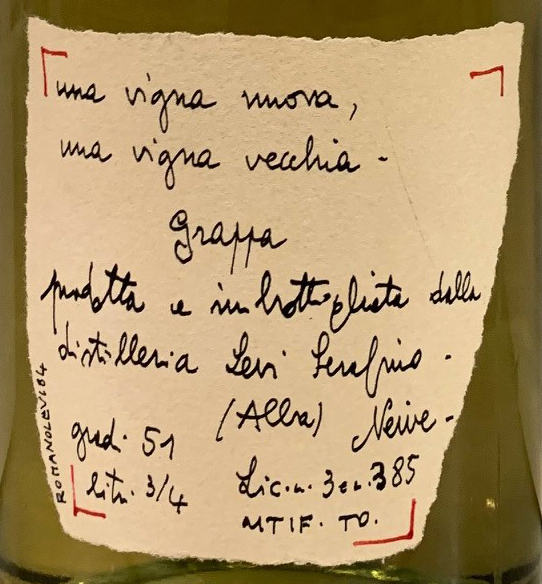 una vigna nuova,
una vigna vecchia -
Grappa
prodotta e imbottigliata dalla
distilleria Levi Serafino -
(Alba) Neive -
gradi 51
litri 3/4
Lic. n. 3 en. 385
MTIF. TO.
ROMANOLEVI 84